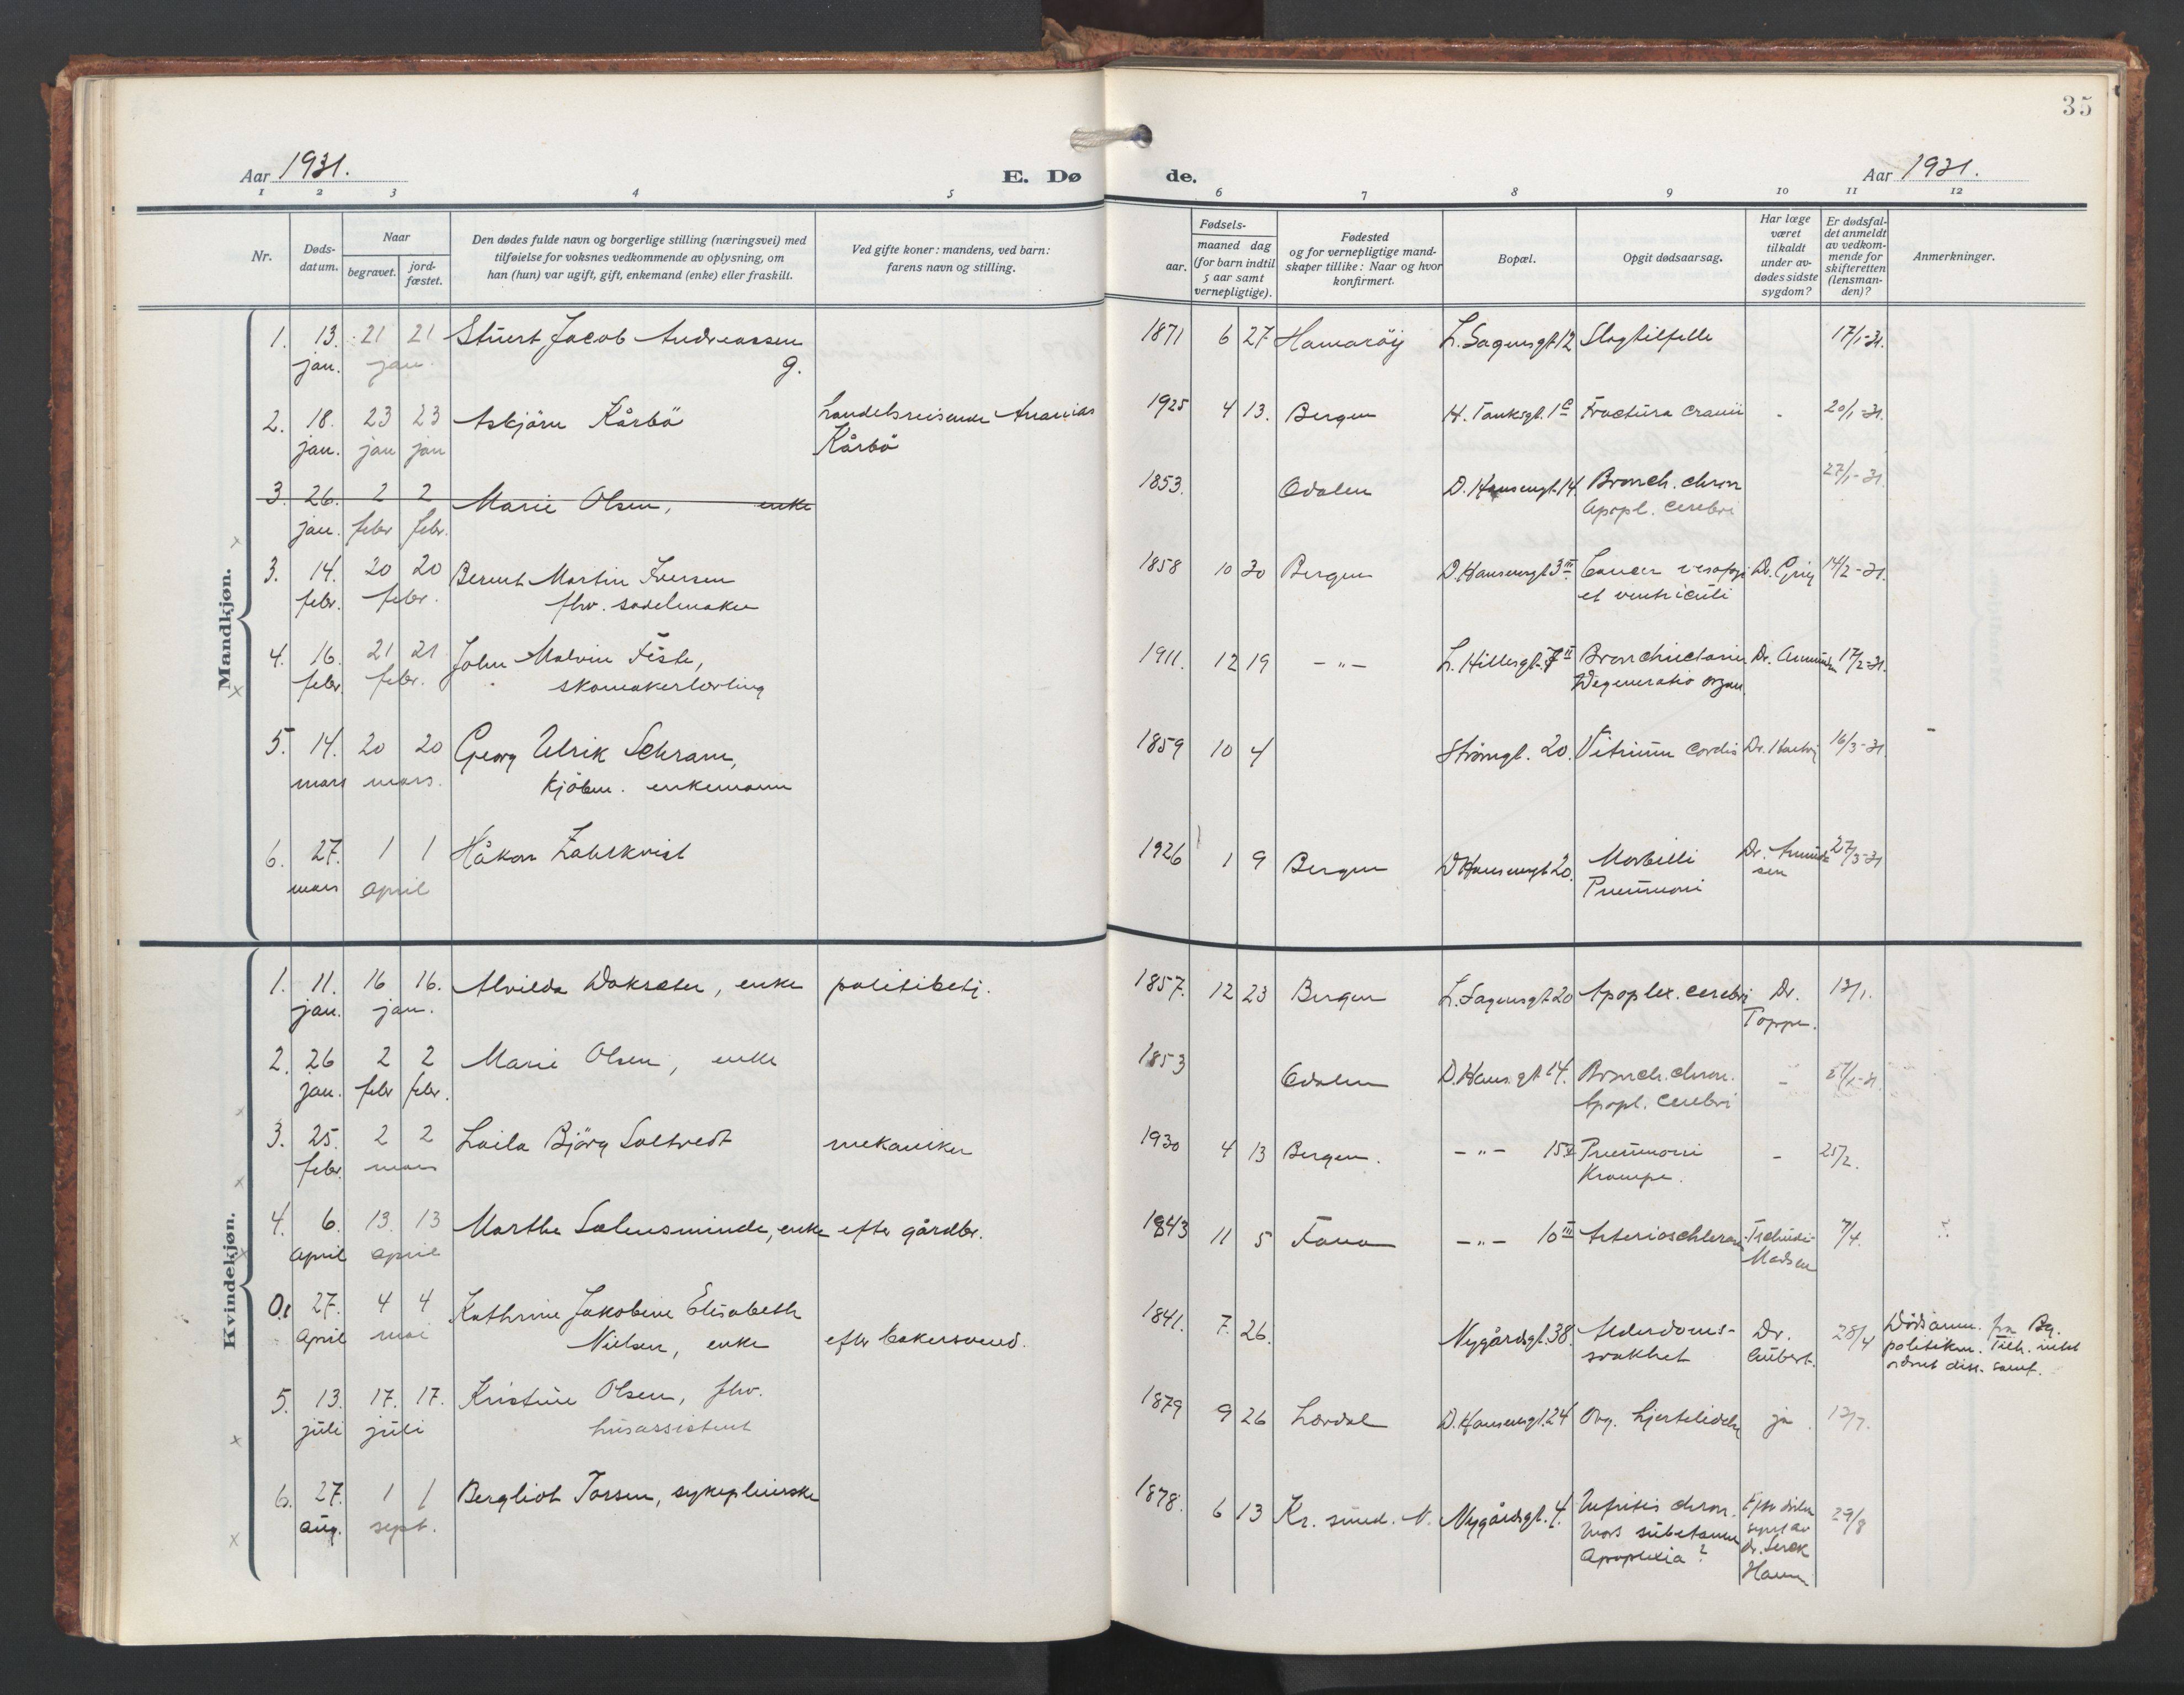 35
Aar 1931. E. Dø de. Aar 1931.
1 2 3 4 5 6 7 8 9 10 11 12
Nr.
Døds-
datum.
Naar
begravet.
jord-
fæstet.
Den dødes fulde navn og borgerlige stilling (næringsvei) med
tilføielse for voksnes vedkommende av oplysning, om
han (hun) var ugift, gift, enkemand (enke) eller fraskilt.
Ved gifte koner: mandens, ved barn:
farens navn og stilling.
Fødsels-
aar.
maaned dag
(for barn indtil
5 aar samt
vernepligtige).
Fødested
og for vernepligtige mand-
skaper tillike: Naar og hvor
konfirmert.
Bopæl.
Opgit dødsaarsag.
Har læge
været
tilkaldt
under av-
dødes sidste
sygdom?
Er dødsfal-
det anmeldt
av vedkom-
mende for
skifteretten
(lensman-
den)?
Anmerkninger.
Mandkjøn.
1. 13. 21 21 Jacob Andreassen 1871 6 27 Hamarøy L. Sagensgt. 12 Slagtilfelle 17/1-31.
jan. jan. g.
2. 18. 23 23 Asbjörn Kårbö handelsreisende Ananias 1925 4 13. Bergen H. Tanksgt. 1c Fractura cranii - 20/1-31.
jan. jan jan Kårbö
3. 26. 2 2 Marie Olsen, enke 1853. Odalen D. Hansensgt. 14. Bronch. chron 27/1-31.
jan. febr febr. Apopl. cerebri
3. 14. 20 20 Bernt Martin Iversen 1858 10 30 Bergen D. Hansensgt. 3 III Cancer Dr. Grieg 14/2-31.
febr. febr. fhv. sadelmaker et ventriculi
4. 16. 21 21 John Malvin 1911. 12 19 -"- L. Hillesgt. 7 II Dr. 17/2-31.
febr. febr. skomakerlærling Degeneratio organ.
5. 14. 20 20 Georg Ulrik Schram, 1859 10 4 Strömgt. 20. Vitium cordis Dr. 16/3-31 -
mars mars. Kjöbm. enkemann
6. 27. 1 1 Håkon 1926 1 9 Bergen D Hansensgt 20. Morbilli Dr. 27/3-31
mars april Pneumoni sen
Kvindekjøn.
1. 11. 16 16. Alvilda , enke politibetj. 1857. 12 23 Bergen L. Sagensgt 20 Apoplex. cerebri Dr. 13/1.
jan. jan. Toppe.
2. 26 2 2 Marie Olsen, enke 1853 Odalen D. Hans. gt 14. Bronch. chron. - 27/1-31.
jan. febr febr. Apopl. cerebri
3. 25. 2 2 Laila Björg Soltvedt mekaniker 1930 4 13 Bergen. -"- 15 Pneumoni - 25/2.
febr. mars Krampe.
4. 6. 13. 13 Marthe Salensminde, enke efter gårdbr. 1843 11 5 Fana -"- 10 III 7/4.
april april Madsen
0. 27. 4 4 Kathrine Jakobine Elisabeth 1841. 7. 26. Nygårdsgt. 38. Alderdoms- Dr. 28/4 Dödsanm. fra Bg.
april mai Nielsen, enke efter bakersvend. svakhet politikam. Tilh. intet
ordnet diss. samf.
5. 13. 17. 17. Kristine Olsen, fhv. 1879 9 26 Lærdal D. Hansensgt. 24 Org. hjertelidelse ja 13/7.
juli juli husassistent
6. 27. 1 1 Bergliot Torsen, sykepleierske 1878. 6 13 Kr. sund. N. Nygårdsgt. 4. Nefritis chron. 29/8
aug. sept. Mors Apoplexia?